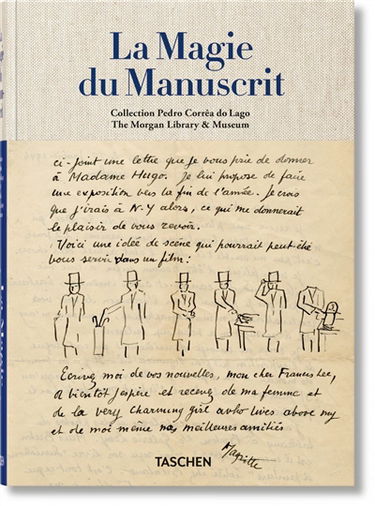 La Magie
du Manuscrit
Collection Pedro Corrêa do Lago
The Morgan Library & Museum
ci-joint une lettre que je vous prie de donner
à Madame Hugo. Je lui propose de faire
une exposition vers la fin de l'année. Je crois
que j'irais à N.Y alors, ce qui me donnerait
le plaisir de vous revoir.
Voici une idée de scène qui pourrait peut-être
vous servir dans un film:
Ecrivez moi de vos nouvelles, mon cher Francis Lee,
A bientôt j'espère et recevez de ma femme et
de la very charming girl who lives above my
et de moi même nos meilleures amitiés
Magritte
TASCHEN